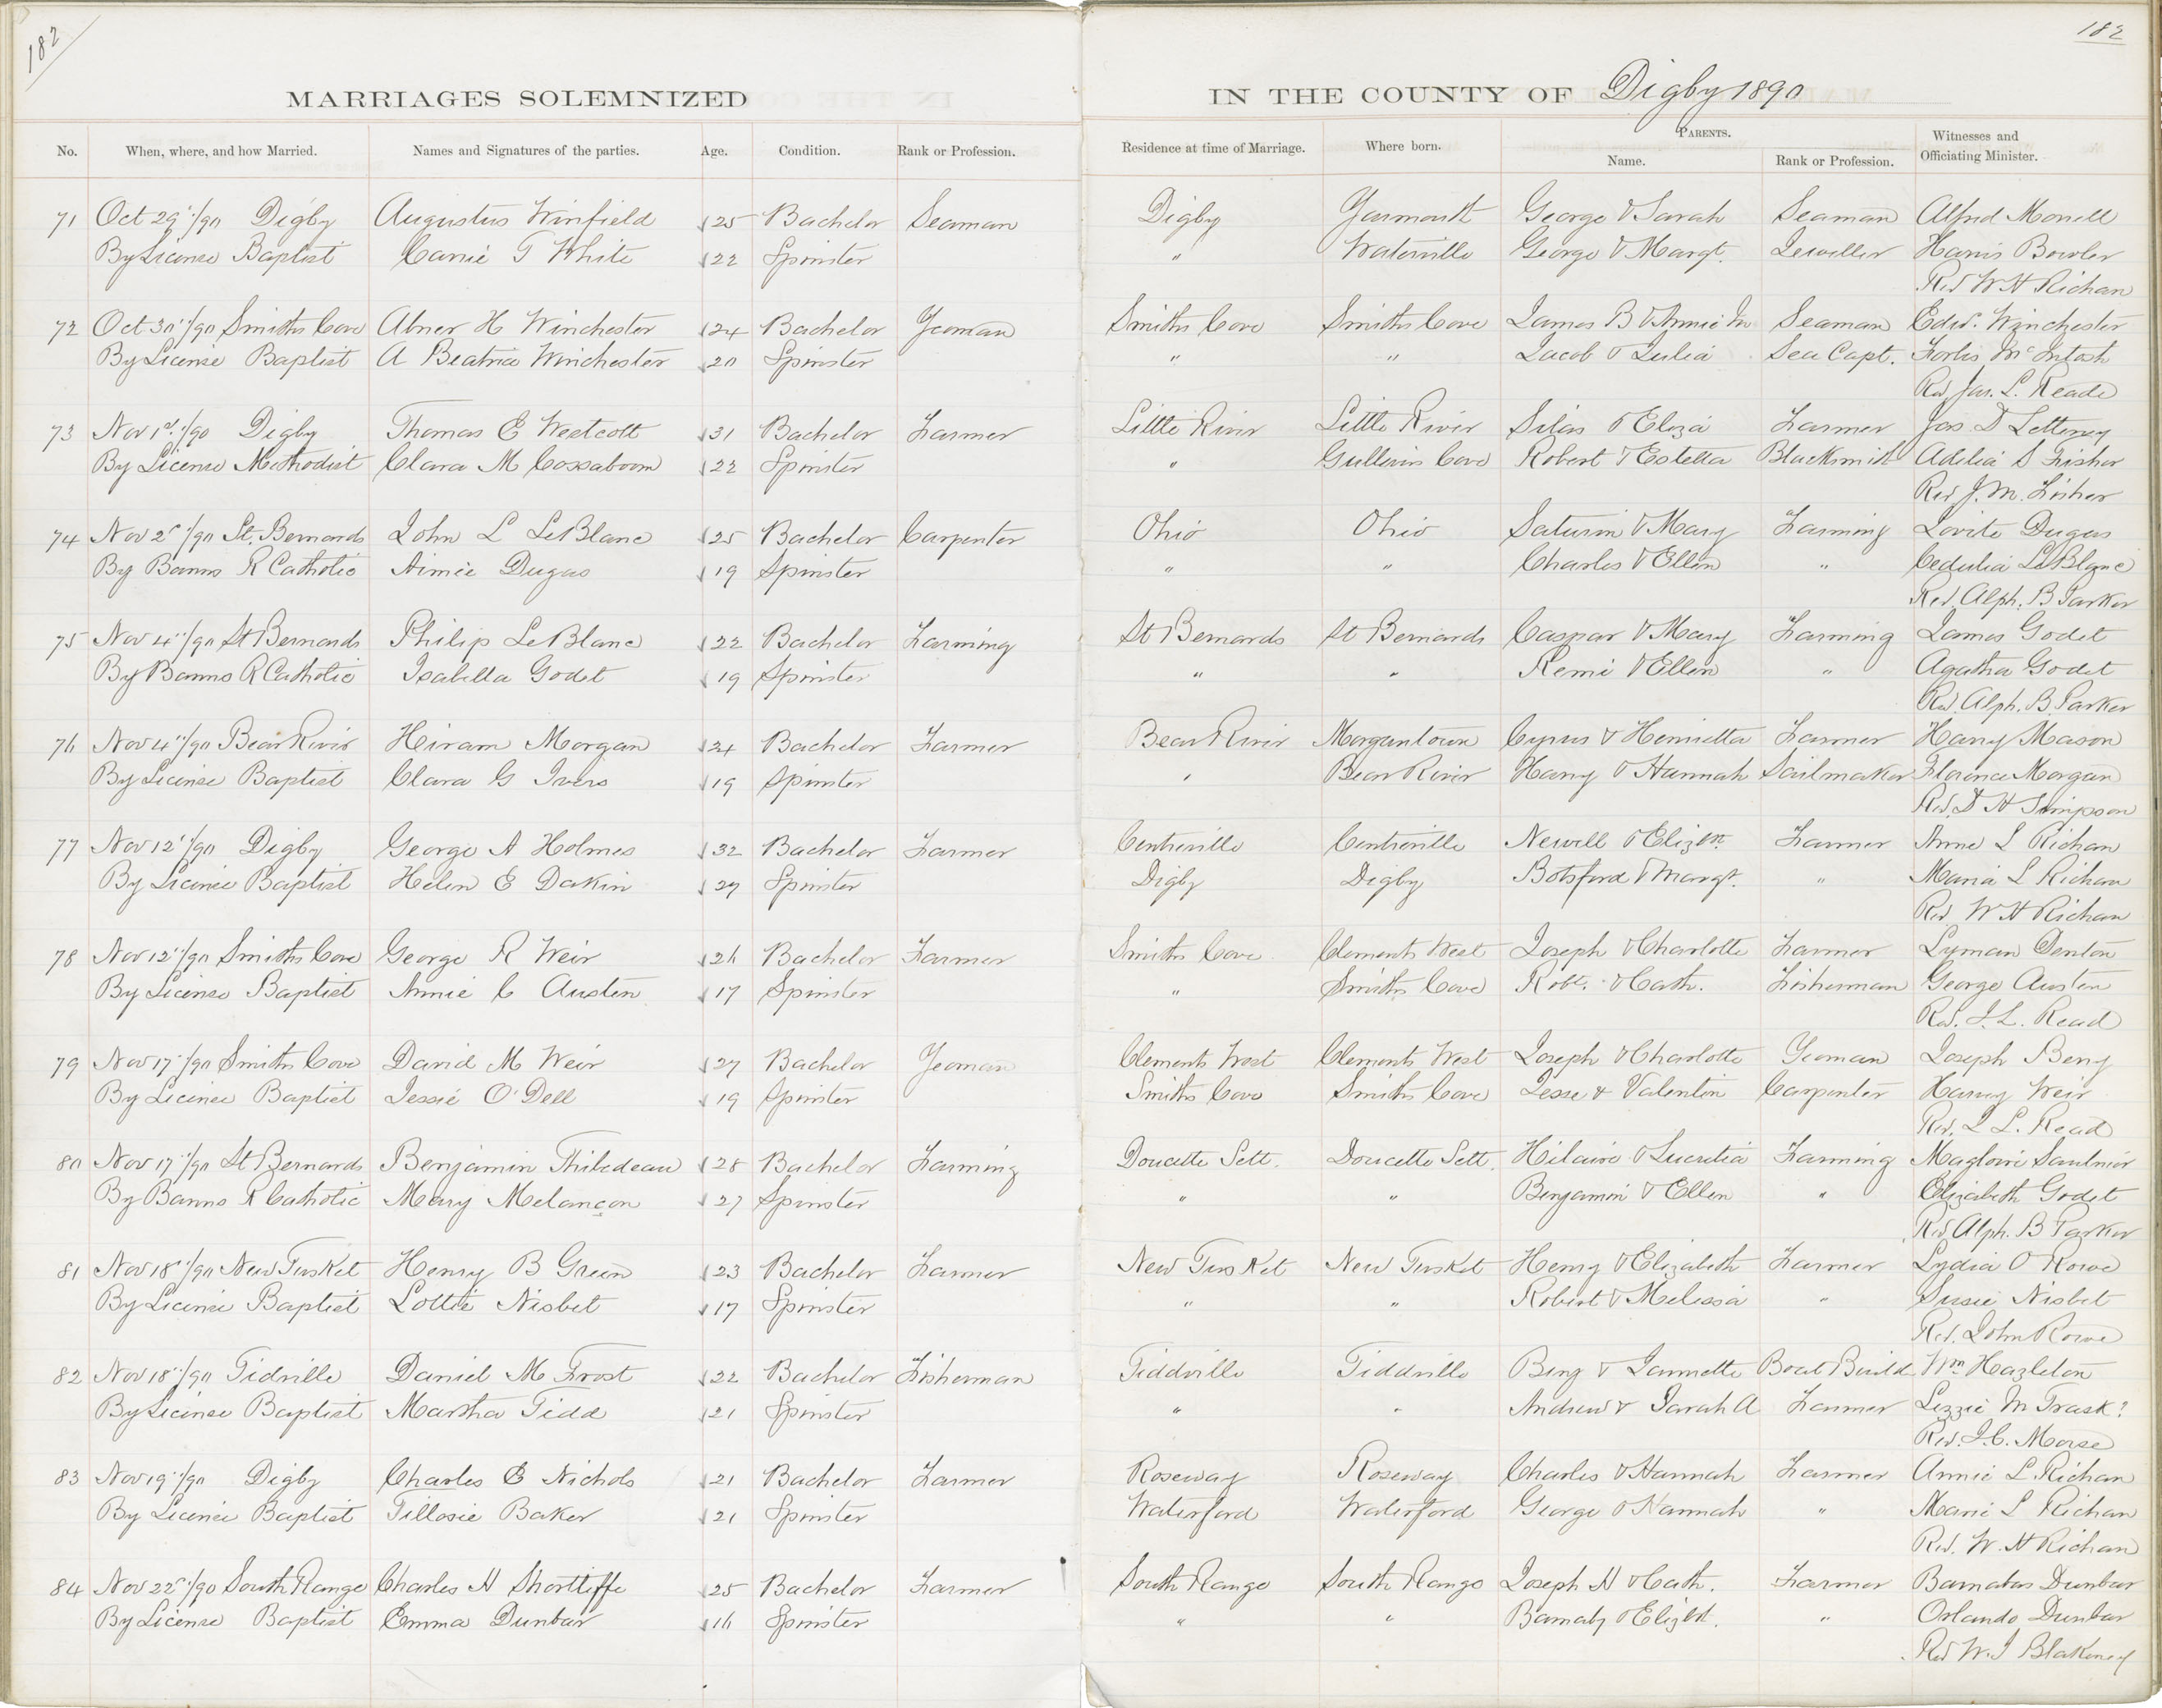 182
182
MARRIAGES SOLEMNIZED IN THE COUNTY OF Digby 1890
No. When, where, and how Married. Names and Signatures of the parties. Age. Condition. Rank or Profession. Residence at time of Marriage. Where born. PARENTS. Name. Rank or Profession. Witnesses and Officiating Minister.
71 Oct 29"/90 Digby Augustus Winfield 25 Bachelor Seaman Digby Yarmouth George & Sarah Seaman Alfred Morrell
By License Baptist Carrie T White 22 Spinster " Waterville George & Margt. Jeweller Harris Bowler
Rev W H Richan
72 Oct 30"/90 Smiths Cove Abner H Winchester 24 Bachelor Yeoman Smiths Cove Smiths Cove James B & Annie M Seaman Edw. Winchester
By License Baptist A Beatrice Winchester 20 Spinster " " Jacob & Julia Sea Capt. Forbes McIntosh
Rev Jas. L. Reade
73 Nov 1st/90 Digby Thomas E Westcott 31 Bachelor Farmer Little River Little River Silas & Eliza Farmer Jas. D Letteney
By License Methodist Clara M Cossaboom 22 Spinster " Gullivers Cove Robert & Estella Blacksmith Adelia S Fisher
Rev J. M. Fisher
74 Nov 2d/90 St. Bernards John L LeBlanc 25 Bachelor Carpenter Ohio Ohio Saturin & Mary Farming Lovite Dugas
By Banns R Catholic Aimie Dugas 19 Spinster " " Charles & Ellen " Cedulia LeBlanc
Rev. Alph. B Parker
75 Nov 4"/90 St Bernards Philip LeBlanc 22 Bachelor Farming St Bernards St Bernards Caspar & Mary Farming James Godet
By Banns R Catholic Isabella Godet 19 Spinster " " Remi & Ellen " Agatha Godet
Rev. Alph. B. Parker
76 Nov 4"/90 Bear River Hiram Morgan 24 Bachelor Farmer Bear River Morgantown Cyrus & Henrietta Farmer Harry Mason
By License Baptist Clara G Ivers 19 Spinster " Bear River Harry & Hannah Sailmaker Florence Morgan
Rev. D H Simpson
77 Nov 12"/90 Digby George A Holmes 32 Bachelor Farmer Centreville Centreville Newell & Elizth. Farmer Anne L Richan
By License Baptist Helen E Dakin 27 Spinster Digby Digby Botsford & Margt. " Maria L Richan
Rev W H Richan
78 Nov 12"/90 Smiths Cove George R Weir 26 Bachelor Farmer Smiths Cove Clements West Joseph & Charlotte Farmer Lyman Denton
By License Baptist Annie C Austen 17 Spinster " Smiths Cove Robt. & Cath. Fisherman George Austen
Rev. J. L. Read
79 Nov 17"/90 Smiths Cove David M Weir 27 Bachelor Yeoman Clements West Clements West Joseph & Charlotte Yeoman Joseph Berry
By License Baptist Jessie O'Dell 19 Spinster Smiths Cove Smiths Cove Jesse & Valentin Carpenter Harry Weir
Rev. J L. Read
80 Nov 17"/90 St Bernards Benjamin Thibedeau 28 Bachelor Farming Doucette Sett. Doucette Sett. Hilaire & Lucretia Farming Magloire Saulnier
By Banns R Catholic Mary Melançon 27 Spinster " " Benjamin & Ellen " Elizabeth Godet
Rev. Alph. B Parker
81 Nov 18"/90 New Tusket Henry B Green 23 Bachelor Farmer New Tusket New Tusket Henry & Elizabeth Farmer Lydia O Rowe
By License Baptist Lottie Nisbet 17 Spinster " " Robert & Melissa " Susie Nisbet
Rev. John Rowe
82 Nov 18"/90 Tidville Daniel M Frost 22 Bachelor Fisherman Tiddville Tiddville Benj & Jannette Boat Build Wm Hazleton
By License Baptist Martha Tidd 21 Spinster " " Andrew & Sarah A Farmer Lizzie M Trask?
Rev. J. C. Morse
83 Nov 19"/90 Digby Charles E Nichols 21 Bachelor Farmer Roseway Roseway Charles & Hannah Farmer Annie L. Richan
By License Baptist Tillosie Baker 21 Spinster Waterford Waterford George & Hannah " Marie L Richan
Rev. W. H Richan
84 Nov 22d/90 South Range Charles H Shortliffe 25 Bachelor Farmer South Range South Range Joseph H & Cath. Farmer Barnabas Dunbar
By License Baptist Emma Dunbar 16 Spinster " " Barnaby & Elizbt. " Orlando Dunbar
Rev W. J Blakeney